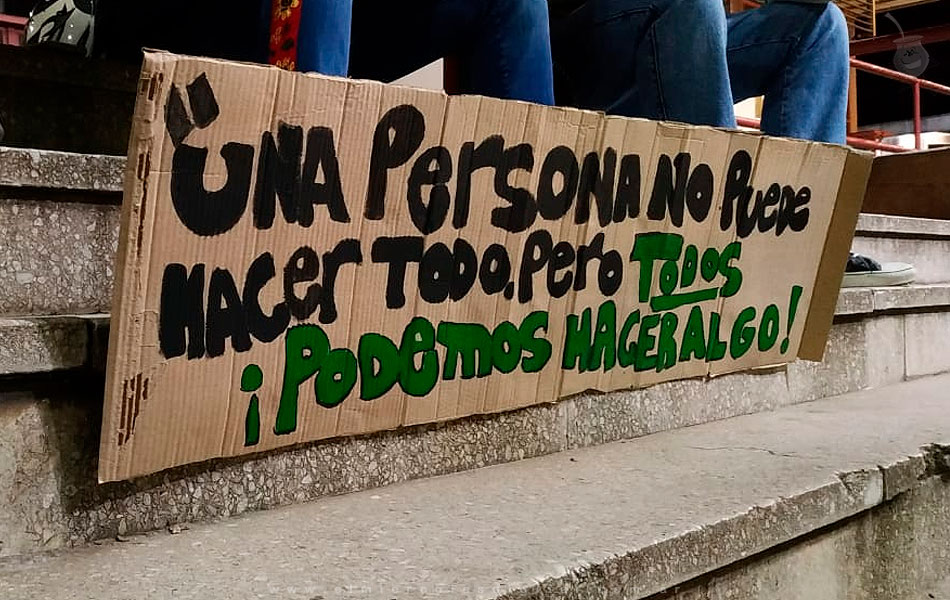 "UNA Persona NO Puede
HACer TODO. Pero TODOS
¡PODEMOS HACER ALGO!